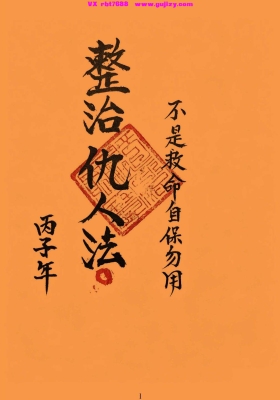 VX rbf7688  http://www.gujizy.com
不是救命自保勿用
整治仇人法
丙子年
1